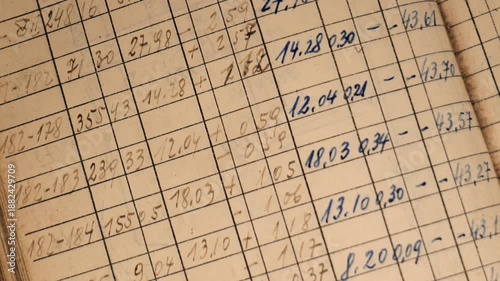 248 16 2 59 27.70
71 30 27 98 - 2 57 14.28 0.30 - - 43,61
182-178 355 43 14.28 + 1 18 12.04 0,21 - - 43,70
182-183 239,33 12.04 + 0 59 - 0 59 18,03 0,34 - - 43,57
182-184 155 05 18.03 + 1 05 - 1 06 13.10 0,30 - - 43,27
9,04 13.10 + 1 18 - 1 17 8.20 0,09 - - 43,1
0 37
Adobe Stock | #1882429709